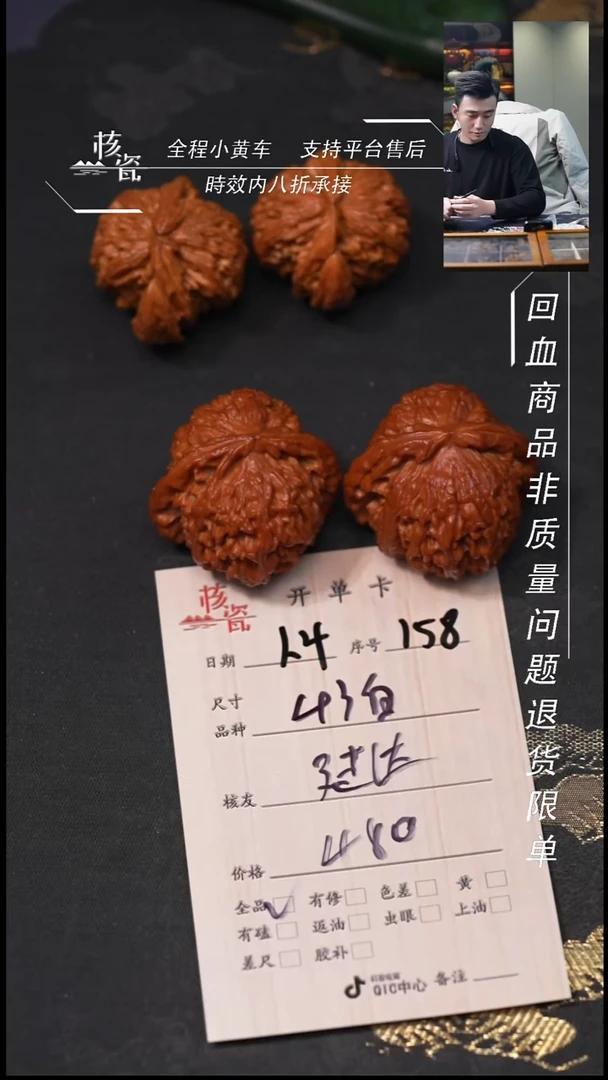 核瓷
全程小黄车 支持平台售后
時效内八折承接
回血商品非质量问题退货限单
核瓷
开单卡
日期 序号 158
尺寸
品种
核友
价格 480
全品 有修 色差 黄
有磕 返油 虫眼 上油
差尺 胶补
QIC中心 备注